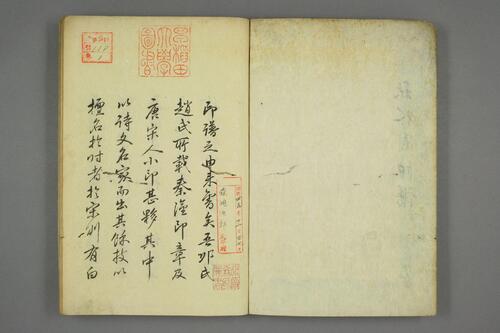 早稻田
大學
圖書
印譜之由来舊矣吾邱氏
趙氏所載秦漢印章及
唐宋人小印甚夥其中
以詩文名家而出其餘技以
擅名於时者於宋則有白